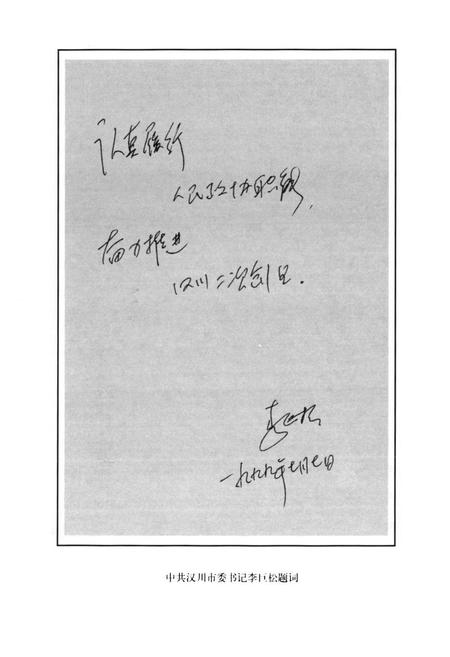 认真履行
人民政协职能，
奋力推进
汉川二次创业.
李巨松
一九九九年七月七日
中共汉川市委书记李巨松题词